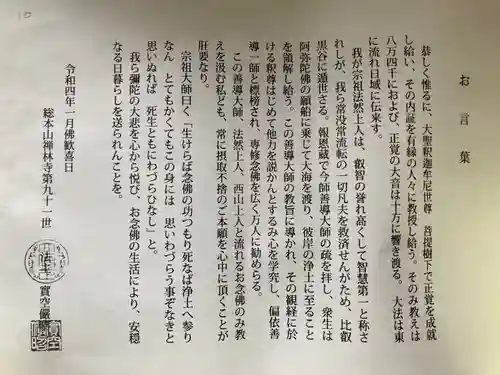 お言葉
恭しく惟るに、大聖釈迦牟尼世尊 菩提樹下で正覚を成就
し給い、その内証を有縁の人々に教授し給う。そのみ教えは
八万四千におよび、正覚の大音は十方に響き渡る。大法は東
に流れ日域に伝来す。
我が宗祖法然上人は、叡智の誉れ高くして智慧第一と称さ
れしが、我ら常没常流転の一切凡夫を救済せんがため、比叡
黒谷に遁世さる。報恩蔵で今師善導大師の疏を拝し、衆生は
阿弥陀佛の願船に乗じて大海を渡り、彼岸の浄土に至ること
を領解し給う。この善導大師の教旨に導かれ、その観経に於
ける釈尊はじめて他力を説かんとするみ心を学究し、偏依善
導一師と標榜され、専修念佛を広く万人に勧めらる。
この善導大師、法然上人、西山上人と流れるお念佛のみ教
えを汲む私ども、常に摂取不捨のご本願を心中に頂くことが
肝要なり。
宗祖大師曰く「生けらば念佛の功つもり死なば浄土へ参り
なん とてもかくてもこの身には 思いわづらう事ぞなきと
思いぬれば 死生ともにわづらひなし」と。
我ら彌陀の大悲を心から悦び、お念佛の生活により、安穏
なる日暮らしを送られんことを。
令和四年一月佛歓喜日
総本山禅林寺第九十一世
法主 實空俊